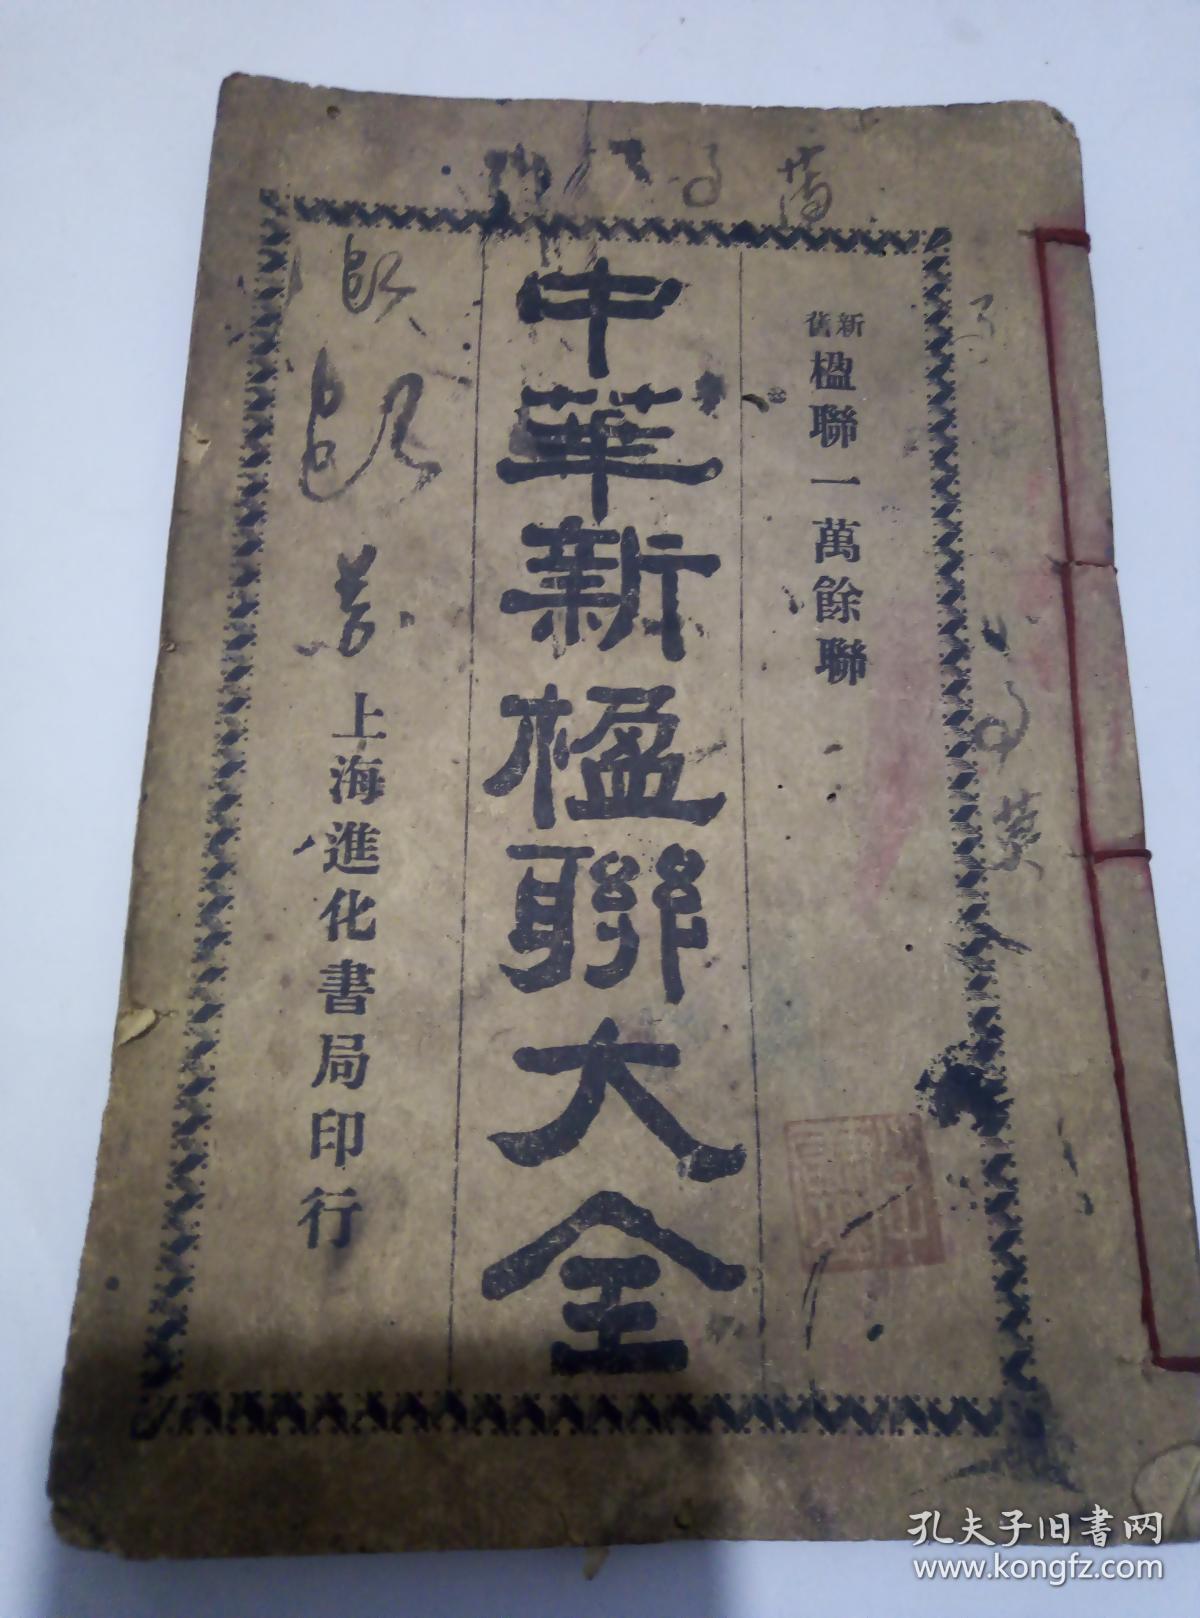 新舊楹聯一萬餘聯
中華新楹聯大全
上海進化書局印行
孔夫子旧書网
www.kongfz.com